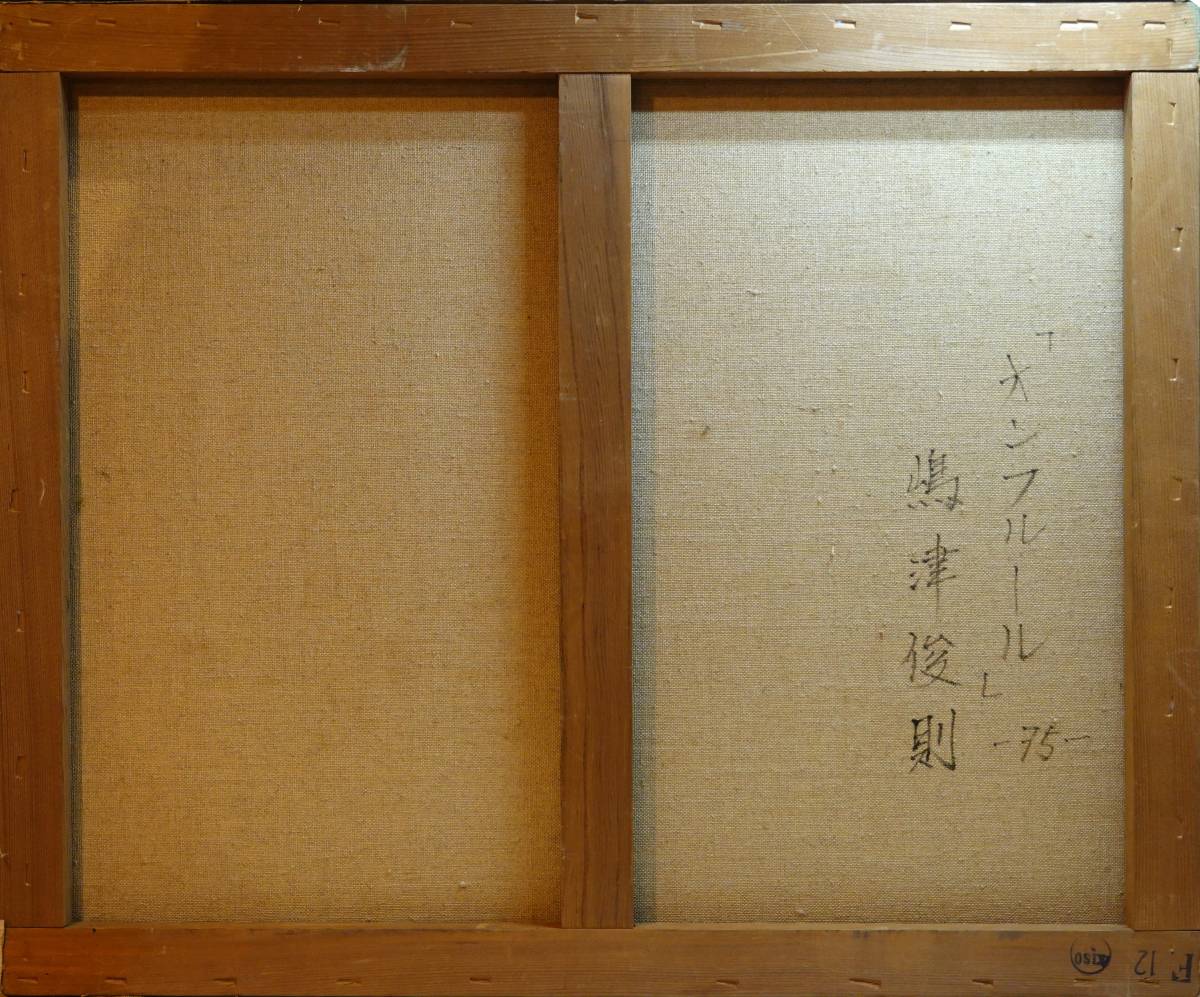 「オンフルール」
-75-
嶋津俊則
F 12